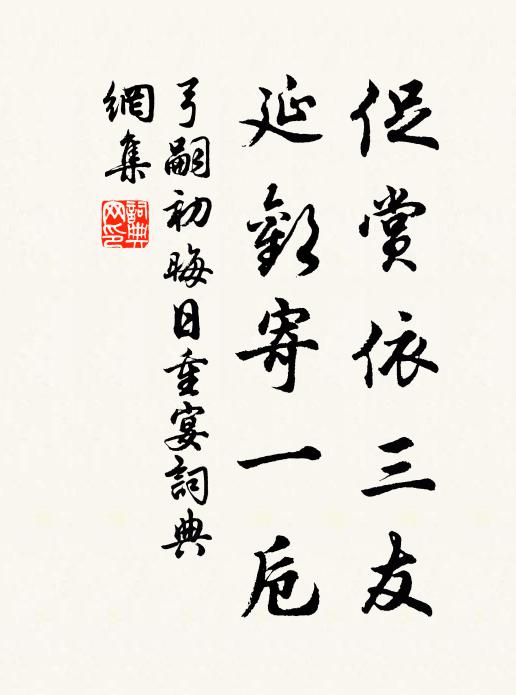 促赏依三友
延歡寄一卮
弓嗣初晦日重宴詞典
網集
詞典網印